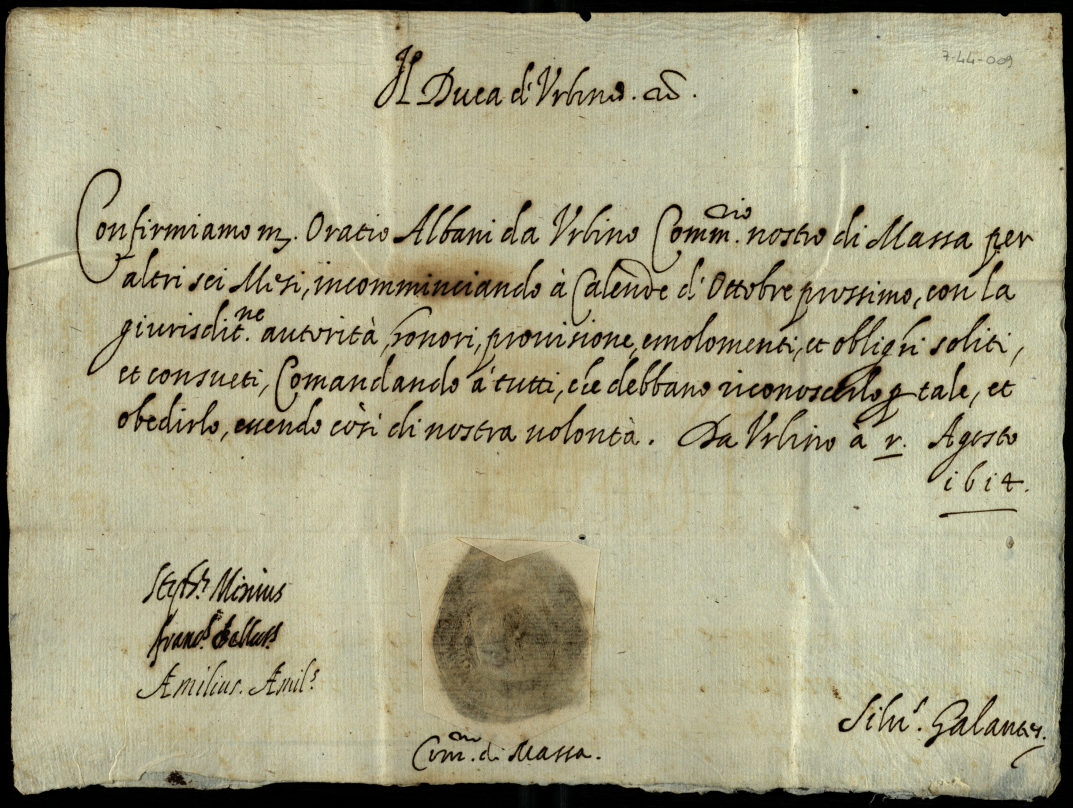 7-44-009
Il Duca d'Urbino. &c.
Confirmiamo m. Oratio Albani da Urbino Comm.rio nostro di Massa per
altri sei Mesi, incomminciando à Calende d'Ottobre prossimo, con la
giurisdit.ne autorità, honori, provisione, emolomenti, et oblighi soliti,
et consueti, Comandando a' tutti, che debbano riconoscerlo p tale, et
obedirlo, essendo così di nostra volontà. Da Urbino à v. Agosto
1614.
Steph.s
Franc.s
Æmilius. Æmil.s
Silv.s Galants.
Com.rio di Massa.